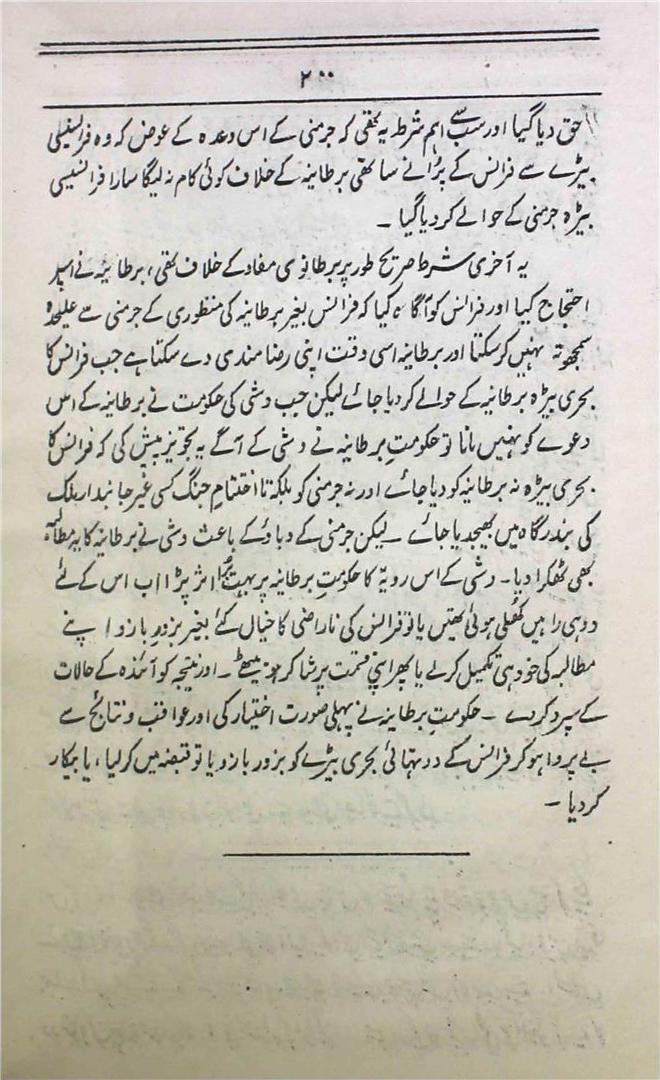 ۲۰۰
حق دیا گیا اور سب سے اہم شرط یہ تھی کہ جرمنی کے اس وعدہ کے عوض کہ وہ فرانسیسی
بیڑے سے فرانس کے پرانے ساتھی برطانیہ کے خلاف کوئی کام نہ لیگا سارا فرانسیسی
بیڑہ جرمنی کے حوالے کر دیا گیا ۔
یہ آخری شرط صریح طور پر برطانوی مفاد کے خلاف تھی، برطانیہ نے اسپر
احتجاج کیا اور فرانس کو آگاہ کیا کہ فرانس بغیر برطانیہ کی منظوری کے جرمنی سے علیحدہ
سمجھوتہ نہیں کر سکتا اور برطانیہ اسی وقت اپنی رضا مندی دے سکتا ہے جب فرانس کا
بحری بیڑہ برطانیہ کے حوالے کر دیا جائے لیکن جب وشی کی حکومت نے برطانیہ کے اس
دعوے کو نہیں مانا تو حکومتِ برطانیہ نے وشی کے آگے یہ تجویز پیش کی کہ فرانس کا
بحری بیڑہ نہ برطانیہ کو دیا جائے اور نہ جرمنی کو بلکہ تا اختتامِ جنگ کسی غیر جانبدار ملک
کی بندرگاہ میں بھیجدیا جائے ۔ لیکن جرمنی کے دباؤ کے باعث وشی نے برطانیہ کا یہ مطالبہ
بھی ٹھکرا دیا ۔ وشی کے اس رویّہ کا حکومتِ برطانیہ پر بہت بُرا اثر پڑا اب اس کے لئے
دو ہی راہیں کھُلی ہوئی تھیں یا تو فرانس کی ناراضی کا خیال کئے بغیر بزورِ بازو اپنے
مطالبہ کی خود ہی تکمیل کر لے یا پھر اپنی قسمت پر شاکر ہو بیٹھے ۔ اور نتیجہ کو آئندہ کے حالات
کے سپرد کر دے ۔ حکومتِ برطانیہ نے پہلی صورت اختیار کی اور عواقب و نتائج سے
بے پروا ہو کر فرانس کے دو تہائی بحری بیڑے کو بزور بازو یا تو قبضہ میں کر لیا، یا بیکار
کر دیا ۔